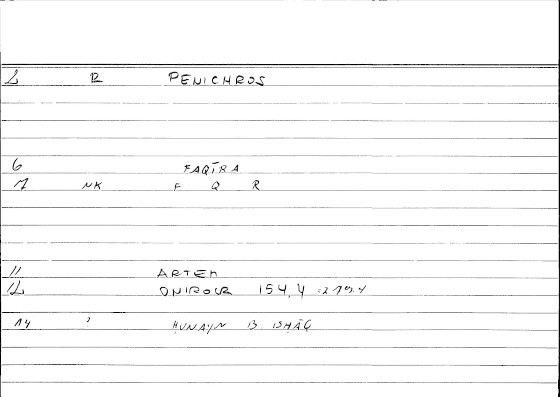 2 R PENICHROS
6 FAQĪRA
7 NK F Q R
11 ARTEM
12 ONIROCR 154,4
14 ? HUNAYN B ISHĀQ